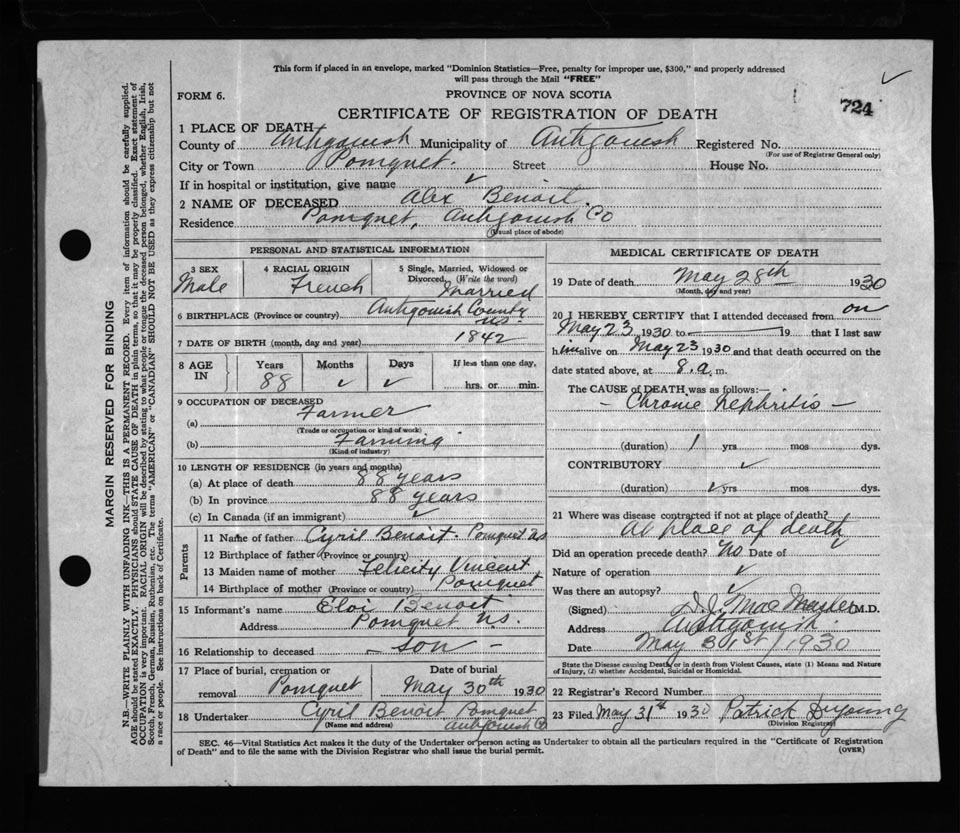 This form if placed in an envelope, marked "Dominion Statistics—Free, penalty for improper use, $300," and properly addressed
will pass through the Mail "FREE"
FORM 6.
PROVINCE OF NOVA SCOTIA
724
CERTIFICATE OF REGISTRATION OF DEATH
1 PLACE OF DEATH
County of Antigonish Municipality of Antigonish Registered No.
(For use of Registrar General only)
City or Town Pomquet. Street House No.
If in hospital or institution, give name ✓
2 NAME OF DECEASED Alex Benoit.
Residence Pomquet, Antigonish Co
(Usual place of abode)
PERSONAL AND STATISTICAL INFORMATION
3 SEX 4 RACIAL ORIGIN 5 Single, Married, Widowed or
Divorced. (Write the word)
Male French Married
6 BIRTHPLACE (Province or country) Antigonish County
N.S.
7 DATE OF BIRTH (month, day and year) 1842
8 AGE IN Years Months Days If less than one day,
88 ✓ ✓ hrs. or min.
9 OCCUPATION OF DECEASED
(a) Farmer
(Trade or occupation or kind of work)
(b) Farming
(Kind of industry)
10 LENGTH OF RESIDENCE (in years and months)
(a) At place of death 88 years
(b) In province 88 years
(c) In Canada (if an immigrant) ✓
Parents
11 Name of father Cyril Benoit. Pomquet NS
12 Birthplace of father (Province or country)
13 Maiden name of mother Felicity Vincent
14 Birthplace of mother (Province or country) Pomquet
15 Informant's name Eloi Benoit
Address Pomquet N.S.
16 Relationship to deceased – son –
17 Place of burial, cremation or
removal Pomquet
Date of burial
May 30th 1930
18 Undertaker Cyril Benoit Pomquet
(Name and address) Antigonish Co
MEDICAL CERTIFICATE OF DEATH
19 Date of death May 28th 1930
(Month, day and year)
20 I HEREBY CERTIFY that I attended deceased from on
May 23 1930 to 19 that I last saw
him alive on May 23 1930 and that death occurred on the
date stated above, at 8.a. m.
The CAUSE of DEATH was as follows:—
– Chronic Nephritis –
(duration) 1 yrs mos dys.
CONTRIBUTORY ✓
(duration) ✓ yrs mos. dys.
21 Where was disease contracted if not at place of death?
At place of death
Did an operation precede death? No Date of ✓
Nature of operation ✓
Was there an autopsy? ✓
(Signed) M.D.
Address Antigonish.
Date May 31st/1930
State the Disease causing Death, or in death from Violent Causes, state (1) Means and Nature
of Injury, (2) whether Accidental, Suicidal or Homicidal.
22 Registrar's Record Number
23 Filed May 31st 1930 Patrick DeYoung
(Division Registrar)
SEC. 46—Vital Statistics Act makes it the duty of the Undertaker or person acting as Undertaker to obtain all the particulars required in the "Certificate of Registration
of Death" and to file the same with the Division Registrar who shall issue the burial permit.
(OVER)
MARGIN RESERVED FOR BINDING
N.B.—WRITE PLAINLY WITH UNFADING INK—THIS IS A PERMANENT RECORD. Every item of information should be carefully supplied.
AGE should be stated EXACTLY. PHYSICIANS should STATE CAUSE OF DEATH in plain terms, so that it may be properly classified. Exact statement of
OCCUPATION is very important. RACIAL ORIGIN will be described by stating to what people or tongue the deceased person belonged, whether English, Irish,
Scotch, French, German, Russian, Ruthenian, etc. The terms "AMERICAN" or "CANADIAN" SHOULD NOT BE USED as they express citizenship but not
a race or people. See instructions on back of Certificate.